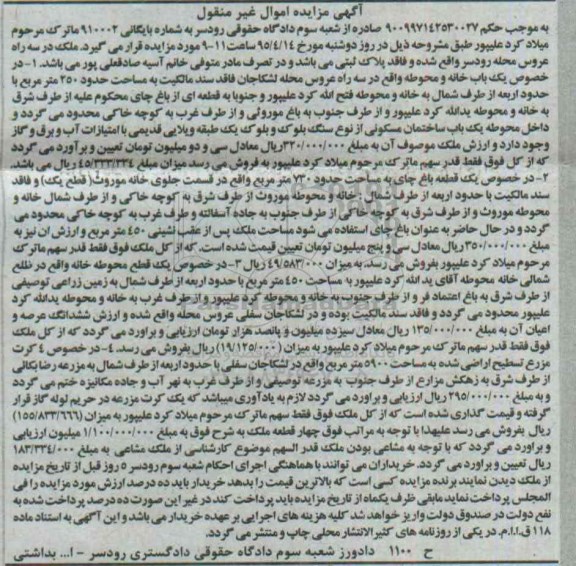 آگهی مزایده اموال غیر منقول
به موجب حکم ۹۰۰۹۹۷۱۴۲۵۳۰۰۲۷ صادره از شعبه سوم دادگاه حقوقی رودسر به شماره بایگانی ۹۱۰۰۰۲ ماترک مرحوم
میلاد کرد علیپور طبق مشروحه ذیل در روز دوشنبه مورخ ۹۵/۴/۱۴ ساعت ۱۱-۹ مورد مزایده قرار می گیرد. ملک در سه راه
عروس محله رودسر واقع شده و فاقد پلاک ثبتی می باشد و در تصرف مادر متوفی خانم آسیه صادقعلی پور می باشد. ۱- در
خصوص یک باب خانه و محوطه واقع در سه راه عروس محله لشکاجان فاقد سند مالکیت به مساحت حدود ۲۵۰ متر مربع با
حدود اربعه از طرف شمال به خانه و محوطه فتح الله کرد علیپور و جنوبا به قطعه ای از باغ چای محکوم علیه از طرف شرق
به خانه و محوطه یدالله کرد علیپور و از طرف جنوب به باغ موروثی و از طرف غرب به کوچه خاکی محدود می گردد و
داخل محوطه یک باب ساختمان مسکونی از نوع سنگ بلوک و بلوک یک طبقه ویلایی قدیمی با امتیازات آب و برق و گاز
وجود دارد و ارزش ملک موصوف آن به مبلغ ۳۲۰/۰۰۰/۰۰۰ ریال معادل سی و دو میلیون تومان تعیین و برآورد می گردد
که از کل فوق فقط قدر سهم ماترک مرحوم میلاد کرد علیپور به فروش می رسد میزان مبلغ ۴۵/۳۳۳/۳۳۴ ریال می باشد.
۲- در خصوص یک قطعه باغ چای به مساحت حدود ۷۳۰ متر مربع واقع در قسمت جلوی خانه موروث (قطع یک) و فاقد
سند مالکیت با حدود اربعه از طرف شمال خانه و محوطه موروث از طرف شرق به کوچه خاکی و از طرف شمال خانه و
محوطه موروث و از طرف شرق به کوچه خاکی از طرف جنوب به جاده آسفالته و طرف غرب به کوچه خاکی محدود می
گردد و در حال حاضر به عنوان باغ چای استفاده می شود مساحت ملک پس از عقب نشینی ۴۵۰ متر مربع و ارزش ان نیز به
مبلغ ۳۵۰/۰۰۰/۰۰۰ ریال معادل سی و پنج میلیون تومان تعیین قیمت شده است. که از کل ملک فوق فقط قدر سهم ماترک
مرحوم میلاد کرد علیپور بفروش می رسد. به میزان ۴۹/۵۸۳/۰۰۰ ریال ۳- در خصوص یک قطع محوطه خانه واقع در ظلع
شمالی خانه محوطه آقای ید الله کرد علیپور به مساحت ۴۵۰ متر مربع با حدود اربعه از طرف شمال به زمین زراعی توصیفی
از طرف شرق به باغ اعتماد فر و از طرف جنوب به خانه و محوطه کرد علیپور و از طرف غرب به خانه و محوطه یدالله کرد
علیپور محدود می گردد و فاقد سند مالکیت بوده و در لشکاجان سفلی عروس محله واقع شده و ارزش ششدانگ عرصه و
اعیان آن به مبلغ ۱۳۵/۰۰۰/۰۰۰ ریال معادل سیزده میلیون و پانصد هزار تومان ارزیابی و براورد می گردد که از کل ملک
فوق فقط قدر سهم ماترک مرحوم میلاد کرد علیپور به میزان (۱۹/۱۲۵/۰۰۰) ریال بفروش می رسد. ۴- در خصوص ۴ کرت
مزرع تسطیح اراضی شده به مساحت ۵۹۰۰ متر مربع واقع در لشکاجان سفلی با حدود اربعه از طرف شمال به مزرعه رضا بکانی
از طرف شرق به زهکش مزارع از طرف جنوب به مزرعه توصیفی و از طرف غرب به نهر آب و جاده مکانیزه ختم می گردد
و به مبلغ ۲۹۵/۰۰۰/۰۰۰ ریال ارزیابی و براورد می گردد لازم به یادآوری میباشد که یک کرت مزرعه در حریم لوله گاز قرار
گرفته و قیمت گذاری شده است که از کل ملک فوق فقط سهم ماترک مرحوم میلاد کرد علیپور به میزان (۱۵۵/۸۳۳/۶۶۶)
ریال بفروش می رسد علیهذا با توجه به مراتب فوق چهار قطعه ملک به شرح فوق به مبلغ ۱/۱۰۰/۰۰۰/۰۰۰ میلیون ارزیابی
و براورد می گردد که با توجه به مشاعی بودن ملک قدر السهم موضوع کارشناسی از ملک مشاعی به مبلغ ۱۸۳/۳۳۴/۰۰۰
ریال تعیین و براورد می گردد. خریداران می توانند با هماهنگی اجرای احکام شعبه سوم رودسر ۵ روز قبل از تاریخ مزایده
از ملک دیدن نمایند برنده مزایده کسی است که بالاترین قیمت را بدهد خریدار باید ده درصد ارزش مورد مزایده را فی
المجلس پرداخت نماید مابقی ظرف یکماه از تاریخ مزایده باید پرداخت کند در غیر این صورت ده درصد پرداخت شده به
نفع دولت در صندوق دولت واریز خواهد شد کلیه هزینه های اجرایی بر عهده خریدار می باشد و این آگهی به استناد ماده
۱۱۸ ق.ا.ا.م. در یکی از روزنامه های کثیر الانتشار محلی چاپ و منتشر می گردد.
ح ۱۱۰۰ دادورز شعبه سوم دادگاه حقوقی دادگستری رودسر - ا... بداشتی